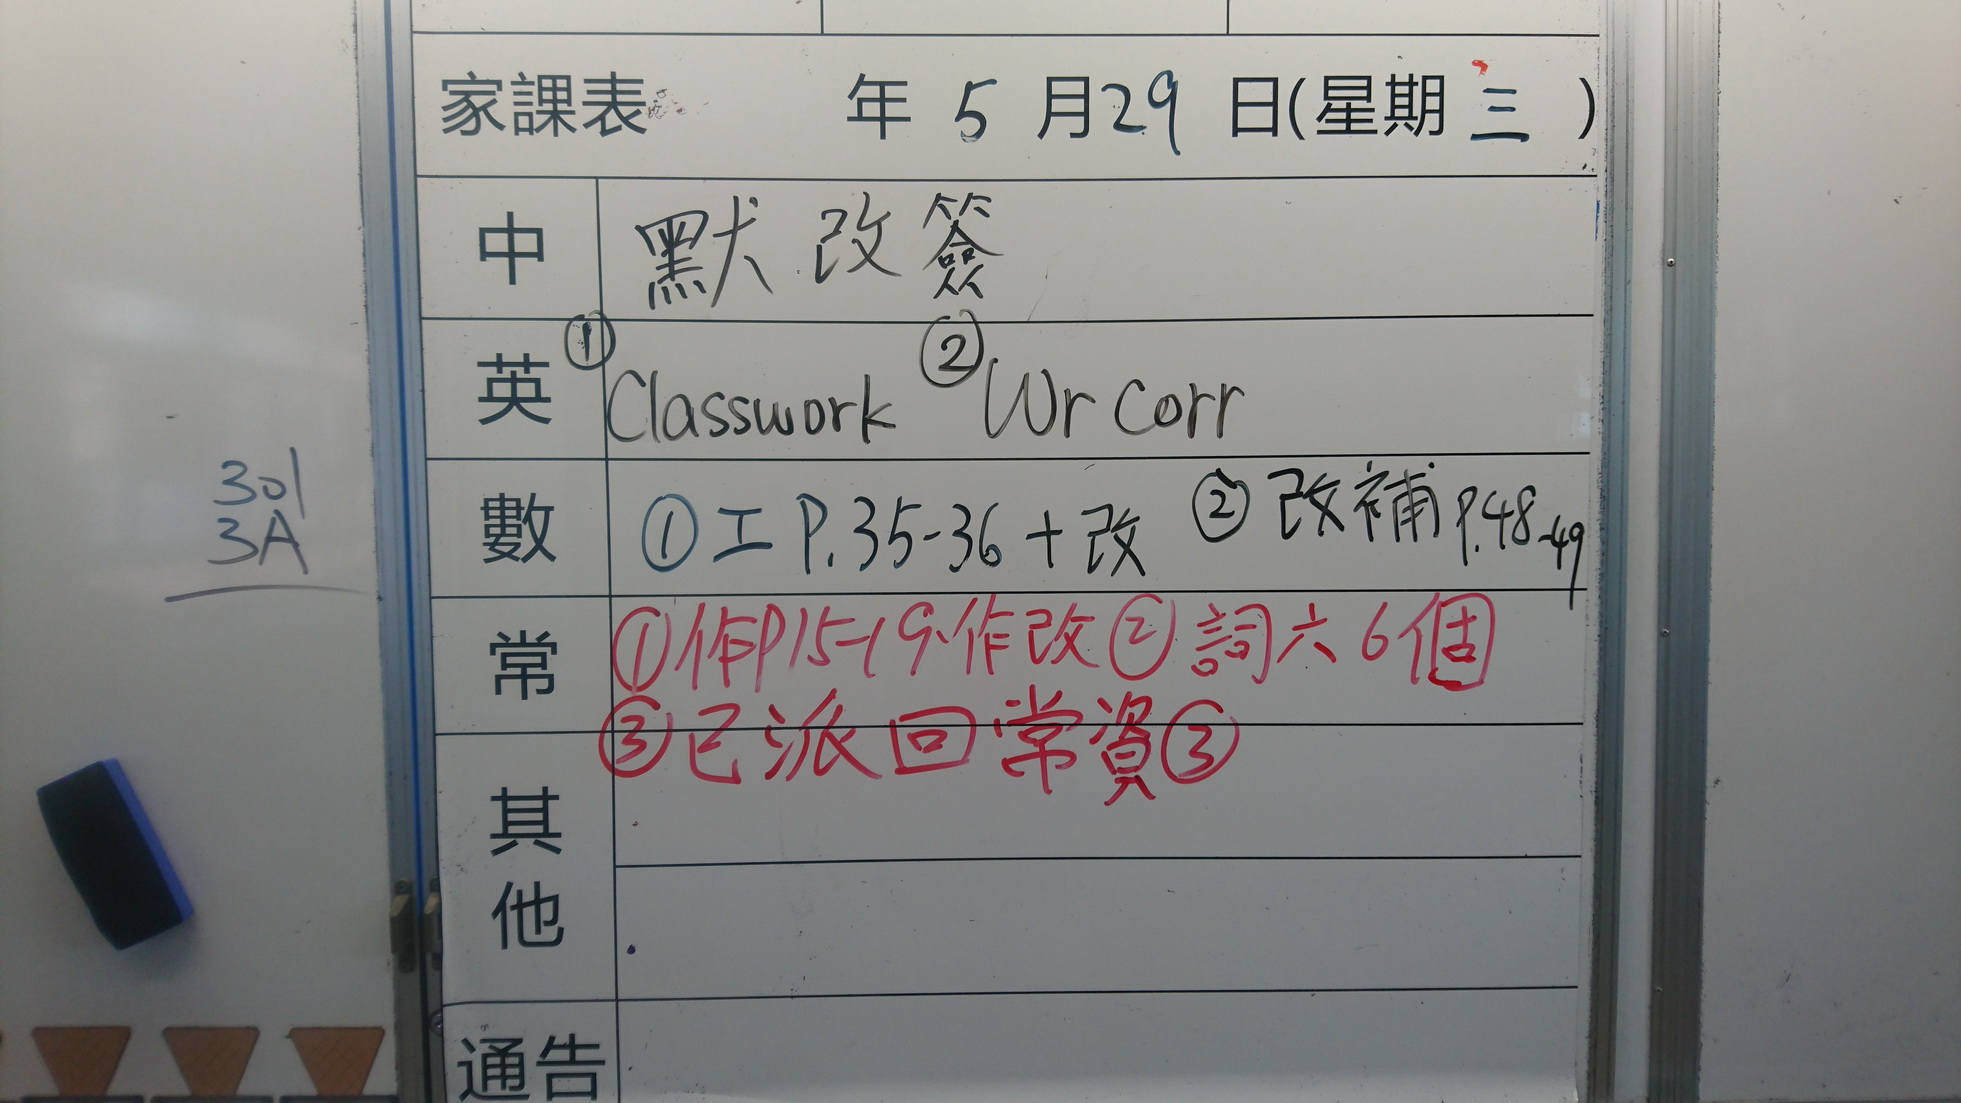 家課表 年 5 月 29 日(星期 三 )
中 默 改 簽
英 ① Classwork ② Wr Corr
數 ① 工 P.35-36 + 改 ② 改補 P.48-49
常 ① 作P15-19作改 ② 詞六 6個
③ 已派回常資③
其他
通告
301
3A